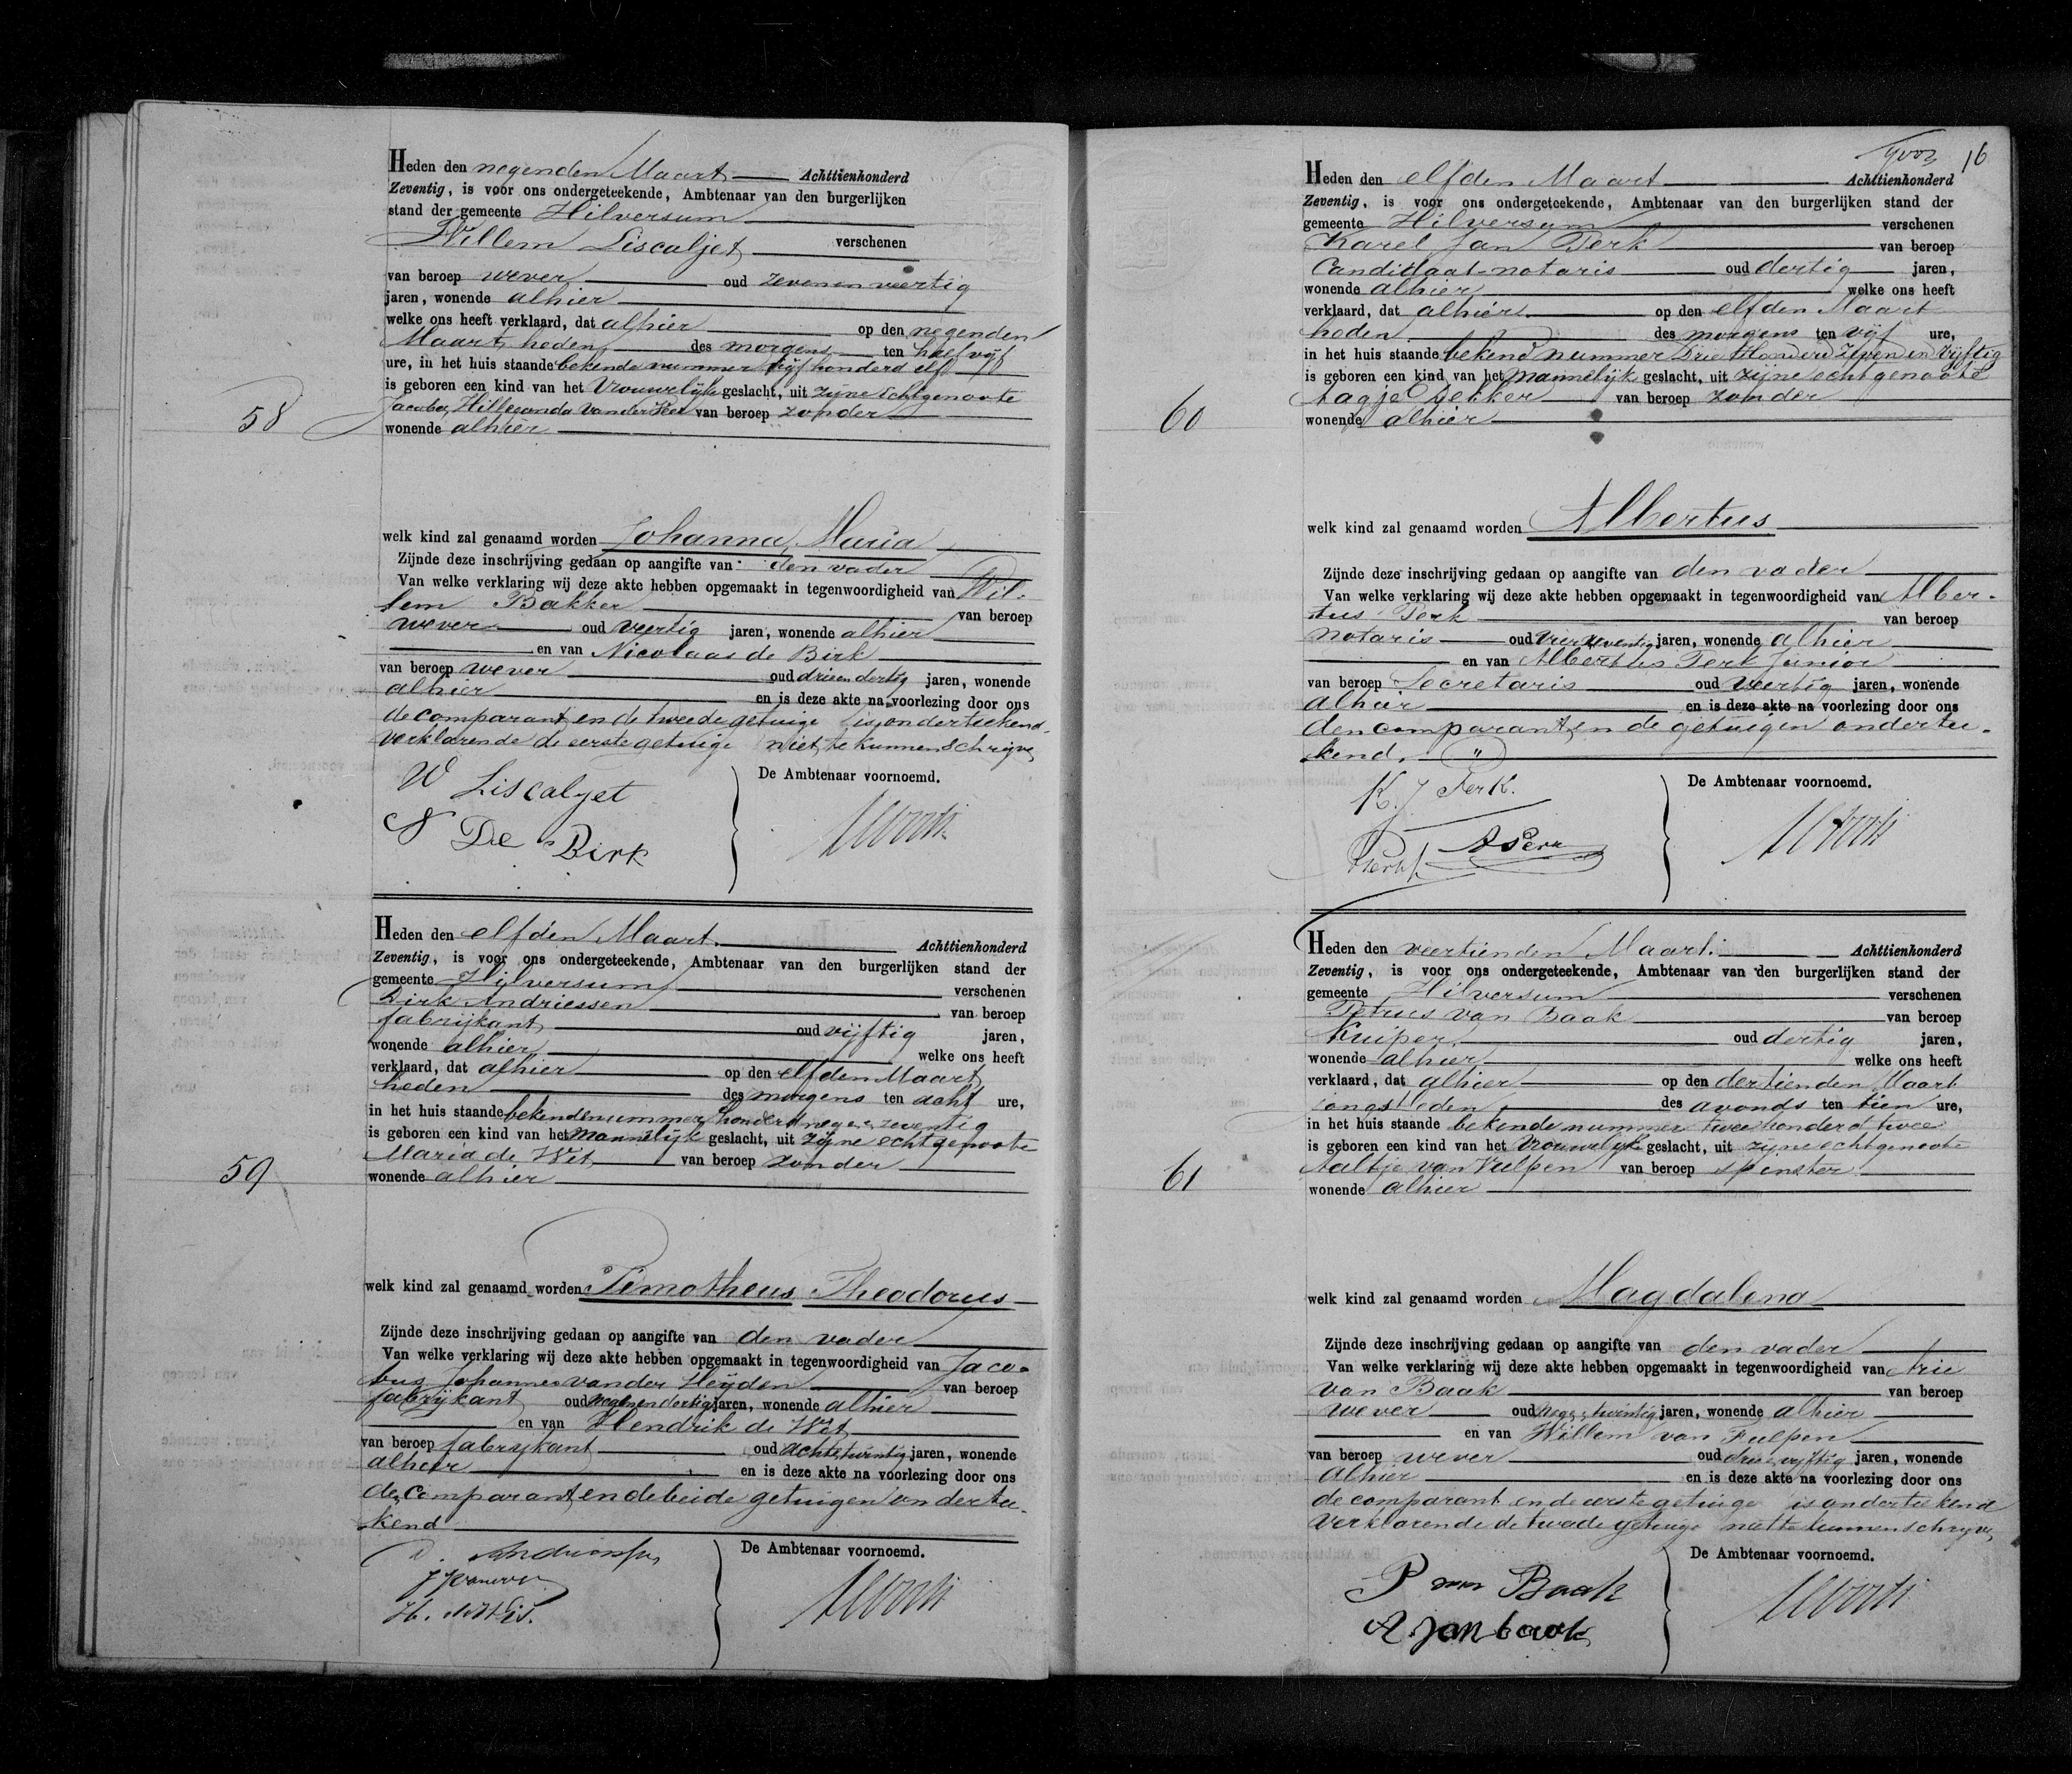 Heden den negenden Maart Achttienhonderd
Zeventig, is voor ons ondergeteekende, Ambtenaar van den burgerlijken
stand der gemeente Hilversum
Willem Liscaljet verschenen
van beroep wever oud zevenenveertig
jaren, wonende alhier
welke ons heeft verklaard, dat alhier op den negenden
Maart heden des morgens ten half vijf
ure, in het huis staande bekende nummer vijf honderd elf
is geboren een kind van het Vrouwelijk geslacht, uit zijne Echtgenoote
Jacoba Hillegonda van der van beroep zonder
58
wonende alhier
welk kind zal genaamd worden Johanna Maria
Zijnde deze inschrijving gedaan op aangifte van den vader
Van welke verklaring wij deze akte hebben opgemaakt in tegenwoordigheid van Wil-
lem Bakker van beroep
wever oud veertig jaren, wonende alhier
en van Nicolaas de Birk
van beroep wever oud drieendertig jaren, wonende
alhier en is deze akte na voorlezing door ons
de comparant en de tweede getuige is onderteekend
verklarende de eerste getuige niet te kunnen schrijve
W Liscalyet De Ambtenaar voornoemd.
N De Birk
Heden den elfden Maart Achttienhonderd
Zeventig, is voor ons ondergeteekende, Ambtenaar van den burgerlijken stand der
gemeente Hilversum verschenen
Dirk Andriessen van beroep
fabrijkant oud vijftig jaren,
wonende alhier welke ons heeft
verklaard, dat alhier op den elfden Maart
heden des morgens ten acht ure,
in het huis staande bekende nummer honderd zeventig
is geboren een kind van het Mannelijk geslacht, uit zijne echtgenoote
Maria de Wit van beroep zonder
59
wonende alhier
welk kind zal genaamd worden Timotheus Theodorus
Zijnde deze inschrijving gedaan op aangifte van den vader
Van welke verklaring wij deze akte hebben opgemaakt in tegenwoordigheid van Jaco-
bus Johannes van der Heijden van beroep
fabrijkant oud negenendertig jaren, wonende alhier
en van Hendrik de Wit
van beroep fabrijkant oud achtentwintig jaren, wonende
alhier en is deze akte na voorlezing door ons
de comparant en de beide getuigen ondertee-
kend
D. Andriessen De Ambtenaar voornoemd.
H. de Wit.
16
Heden den elfden Maart Achttienhonderd
Zeventig, is voor ons ondergeteekende, Ambtenaar van den burgerlijken stand der
gemeente Hilversum verschenen
Karel Jan Perk van beroep
Candidaat-notaris oud dertig jaren,
wonende alhier welke ons heeft
verklaard, dat alhier op den elfden Maart
heden des morgens ten vijf ure,
in het huis staande bekend nummer Drie Honderd Zeven en Vijftig
is geboren een kind van het mannelijk geslacht, uit zijne echtgenoote
Aagje Dekker van beroep zonder
60
wonende alhier
welk kind zal genaamd worden Albertus
Zijnde deze inschrijving gedaan op aangifte van den vader
Van welke verklaring wij deze akte hebben opgemaakt in tegenwoordigheid van Alber-
tus Perk van beroep
notaris oud vierzeventig jaren, wonende alhier
en van Albertus Perk Junior
van beroep Secretaris oud veertig jaren, wonende
alhier en is deze akte na voorlezing door ons
den comparant en de getuigen ondertee-
kend.
K. J Perk. De Ambtenaar voornoemd.
A Perk
Heden den veertienden Maart Achttienhonderd
Zeventig, is voor ons ondergeteekende, Ambtenaar van den burgerlijken stand der
gemeente Hilversum verschenen
Petrus van Baak van beroep
Kuiper oud dertig jaren,
wonende alhier welke ons heeft
verklaard, dat alhier op den dertienden Maart
jongstleden des avonds ten tien ure,
in het huis staande bekende nummer twee honderd twee
is geboren een kind van het Vrouwelijk geslacht, uit zijne echtgenoote
Aaltje van Vulpen van beroep spinster
61
wonende alhier
welk kind zal genaamd worden Magdalena
Zijnde deze inschrijving gedaan op aangifte van den vader
Van welke verklaring wij deze akte hebben opgemaakt in tegenwoordigheid van Arie
van Baak van beroep
wever oud twintig jaren, wonende alhier
en van Willem van Fulpen
van beroep wever oud drie vijftig jaren, wonende
alhier en is deze akte na voorlezing door ons
de comparant en de eerste getuige is onderteekend
verklarende de twede getuige niet te kunnen schryve
P van Baak De Ambtenaar voornoemd.
A van baak